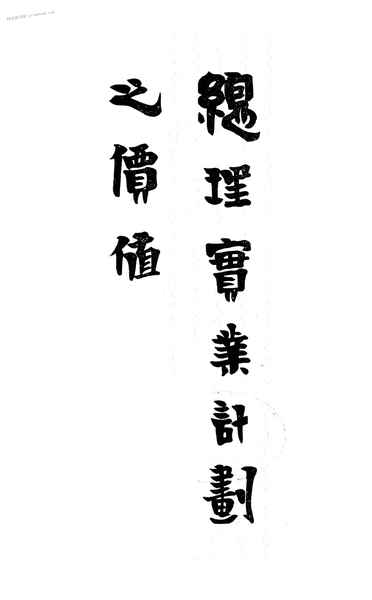 總理實業計劃
之價值